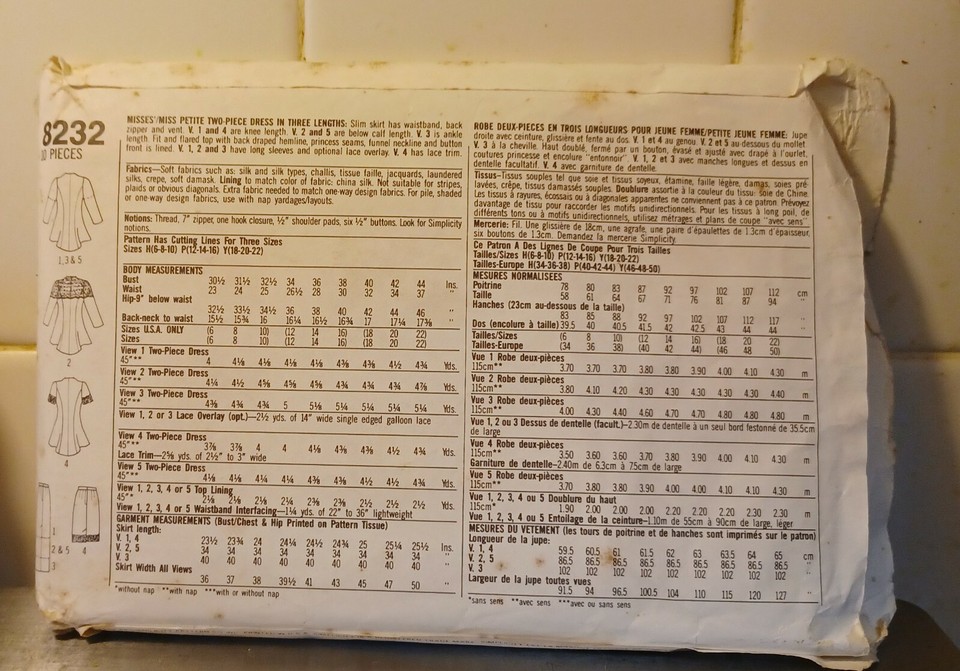 8232
10 PIECES
1,3 & 5
2
4
1
2 & 5
4
3
MISSES'/MISS PETITE TWO-PIECE DRESS IN THREE LENGTHS: Slim skirt has waistband, back
zipper and vent. V. 1 and 4 are knee length. V. 2 and 5 are below calf length. V. 3 is ankle
length. Fit and flared top with back draped hemline, princess seams, funnel neckline and button
front is lined. V. 1, 2 and 3 have long sleeves and optional lace overlay. V. 4 has lace trim.
Fabrics—Soft fabrics such as: silk and silk types, challis, tissue faille, jacquards, laundered
silks, crepe, soft damask. Lining to match color of fabric: china silk. Not suitable for stripes,
plaids or obvious diagonals. Extra fabric needed to match one-way design fabrics. For pile, shaded
or one-way design fabrics, use with nap yardages/layouts.
Notions: Thread, 7" zipper, one hook closure, ½" shoulder pads, six ½" buttons. Look for Simplicity
notions.
Pattern Has Cutting Lines For Three Sizes
Sizes H(6-8-10) P(12-14-16) Y(18-20-22)
BODY MEASUREMENTS
Bust 30½ 31½ 32½ 34 36 38 40 42 44 Ins.
Waist 23 24 25 26½ 28 30 32 34 37 "
Hip-9" below waist
32½ 33½ 34½ 36 38 40 42 44 46 "
Back-neck to waist 15½ 15¾ 16 16¼ 16½ 16¾ 17 17¼ 17⅜ "
Sizes U.S.A. ONLY (6 8 10) (12 14 16) (18 20 22)
Sizes (6 8 10) (12 14 16) (18 20 22)
View 1 Two-Piece Dress
45"** 4 4⅛ 4⅛ 4⅛ 4⅛ 4⅜ 4⅜ 4½ 4¾ Yds.
View 2 Two-Piece Dress
45"** 4¼ 4½ 4⅝ 4⅝ 4¾ 4¾ 4¾ 4¾ 4⅞ Yds.
View 3 Two-Piece Dress
45"** 4⅜ 4¾ 4¾ 5 5⅛ 5¼ 5¼ 5¼ 5¼ Yds.
View 1, 2 or 3 Lace Overlay (opt.)—2½ yds. of 14" wide single edged galloon lace
View 4 Two-Piece Dress
45"** 3⅞ 3⅞ 4 4 4⅛ 4⅜ 4⅜ 4½ 4¾ Yds.
Lace Trim—2⅝ yds. of 2½" to 3" wide
View 5 Two-Piece Dress
45"** 4⅛ 4⅛ 4¼ 4¼ 4⅜ 4⅜ 4½ 4½ 4¾ Yds.
View 1, 2, 3, 4 or 5 Top Lining
45"* 2⅛ 2⅛ 2⅛ 2¼ 2⅜ 2⅜ 2½ 2½ 2½ Yds.
View 1, 2, 3, 4 or 5 Waistband Interfacing—1¼ yds. of 22" to 36" lightweight
GARMENT MEASUREMENTS (Bust/Chest & Hip Printed on Pattern Tissue)
Skirt length:
V. 1, 4 23½ 23¾ 24 24¼ 24½ 24¾ 25 25¼ 25½ Ins.
V. 2, 5 34 34 34 34 34 34 34 34 34 "
V. 3 40 40 40 40 40 40 40 40 40 "
Skirt Width All Views
36 37 38 39½ 41 43 45 47 50 "
*without nap **with nap ***with or without nap
ROBE DEUX-PIECES EN TROIS LONGUEURS POUR JEUNE FEMME/PETITE JEUNE FEMME: Jupe
droite avec ceinture, glissière et fente au dos. V. 1 et 4 au genou. V. 2 et 5 au dessous du mollet.
V. 3 à la cheville. Haut doublé, fermé par un bouton, évasé et ajusté avec drapé à l'ourlet,
coutures princesse et encolure "entonnoir". V. 1, 2 et 3 avec manches longues et dessus en
dentelle facultatif. V. 4 avec garniture de dentelle.
Tissus—Tissus souples tel que soie et tissus soyeux, étamine, faille légère, damas, soies pré-
lavées, crêpe, tissus damassés souples. Doublure assortie à la couleur du tissu: soie de Chine.
Les tissus à rayures, écossais ou à diagonales apparentes ne conviennent pas à ce patron. Prévoyez
davantage de tissu pour raccorder les motifs unidirectionnels. Pour les tissus à long poil, de
différents tons ou à motifs unidirectionnels, utilisez métrages et plans de coupe "avec sens".
Mercerie: Fil. Une glissière de 18cm, une agrafe, une paire d'épaulettes de 1.3cm d'épaisseur,
six boutons de 1.3cm. Demandez la mercerie Simplicity.
Ce Patron A Des Lignes De Coupe Pour Trois Tailles
Tailles/Sizes H(6-8-10) P(12-14-16) Y(18-20-22)
Tailles-Europe H(34-36-38) P(40-42-44) Y(46-48-50)
MESURES NORMALISEES
Poitrine 78 80 83 87 92 97 102 107 112 cm
Taille 58 61 64 67 71 76 81 87 94 "
Hanches (23cm au-dessous de la taille)
83 85 88 92 97 102 107 112 117 "
Dos (encolure à taille) 39.5 40 40.5 41.5 42 42.5 43 44 44 "
Tailles/Sizes (6 8 10) (12 14 16) (18 20 22)
Tailles-Europe (34 36 38) (40 42 44) (46 48 50)
Vue 1 Robe deux-pièces
115cm** 3.70 3.70 3.70 3.80 3.80 3.90 4.00 4.10 4.30 m
Vue 2 Robe deux-pièces
115cm** 3.80 4.10 4.20 4.30 4.30 4.30 4.30 4.30 4.40 m
Vue 3 Robe deux-pièces
115cm** 4.00 4.30 4.40 4.60 4.70 4.70 4.80 4.80 4.80 m
Vue 1, 2 ou 3 Dessus de dentelle (facult.)—2.30m de dentelle à un seul bord festonné de 35.5cm
de large
Vue 4 Robe deux-pièces
115cm** 3.50 3.60 3.60 3.70 3.80 3.90 4.00 4.10 4.30 m
Garniture de dentelle—2.40m de 6.3cm à 7.5cm de large
Vue 5 Robe deux-pièces
115cm** 3.70 3.80 3.80 3.90 4.00 4.00 4.10 4.10 4.30 m
Vue 1, 2, 3, 4 ou 5 Doublure du haut
115cm* 1.90 2.00 2.00 2.00 2.20 2.20 2.20 2.30 2.30 m
Vue 1, 2, 3, 4 ou 5 Entoilage de la ceinture—1.10m de 55cm à 90cm de large, léger
MESURES DU VETEMENT (les tours de poitrine et de hanches sont imprimés sur le patron)
Longueur de la jupe:
V. 1, 4 59.5 60.5 61 61.5 62 63 63.5 64 65 cm
V. 2, 5 86.5 86.5 86.5 86.5 86.5 86.5 86.5 86.5 86.5 "
V. 3 102 102 102 102 102 102 102 102 102 "
Largeur de la jupe toutes vues
91.5 94 96.5 100.5 104 110 115 120 127 "
*sans sens **avec sens ***avec ou sans sens